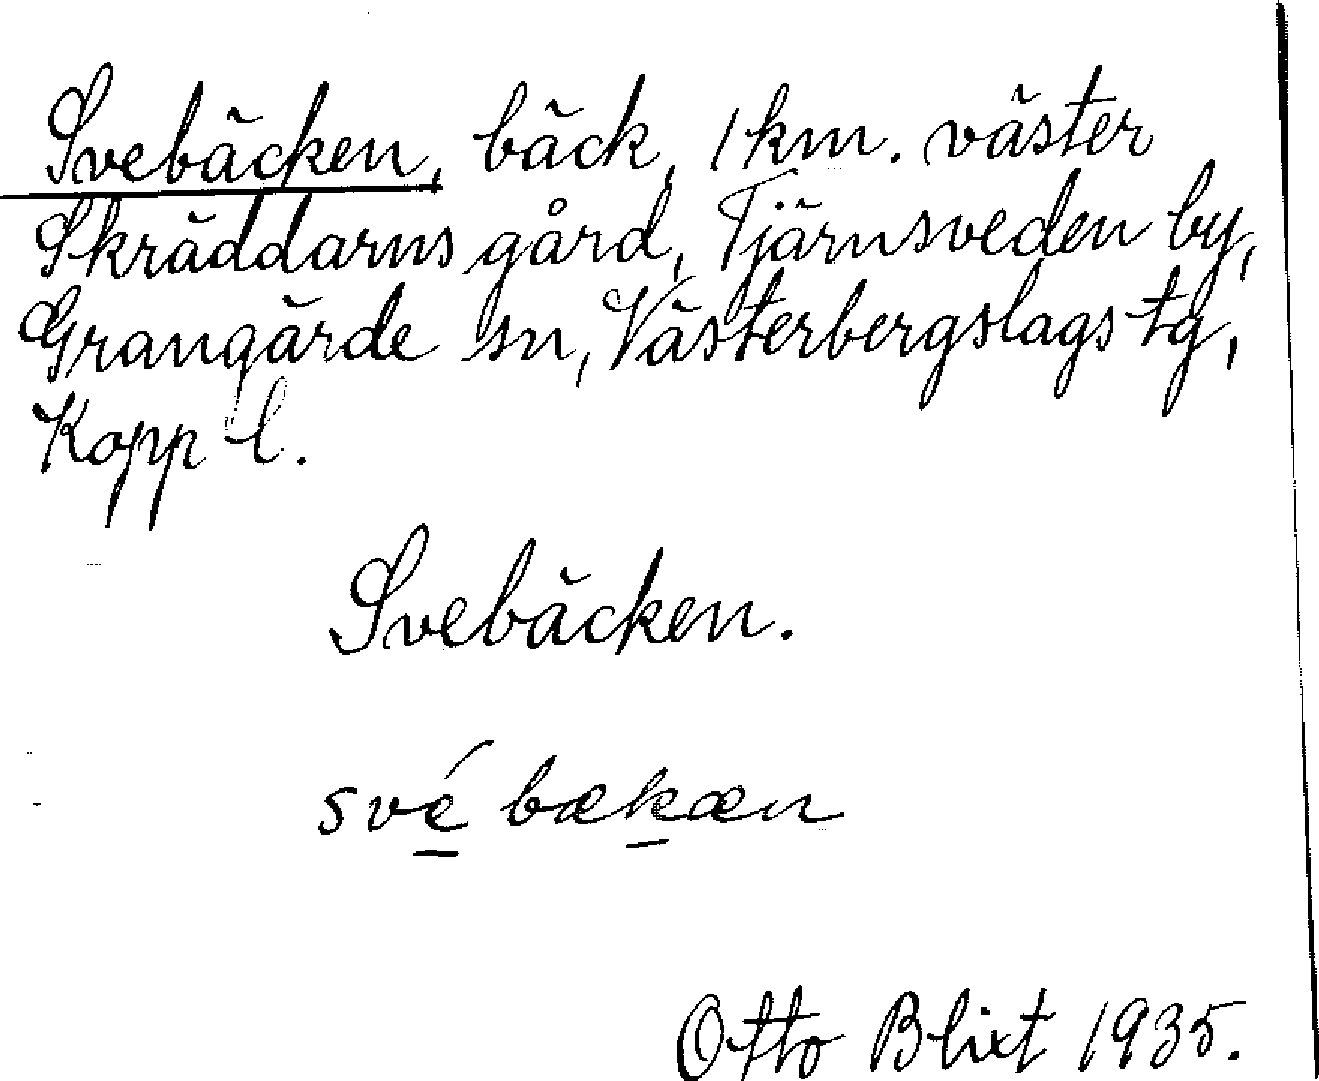 Svebäcken, bäck, 1 km. väster
Skräddarns gård, Tjärnsveden by,
Grangärde sn, Västerbergslags tg,
Kopp l.
Svebäcken.
své bækæn
Otto Blixt 1935.